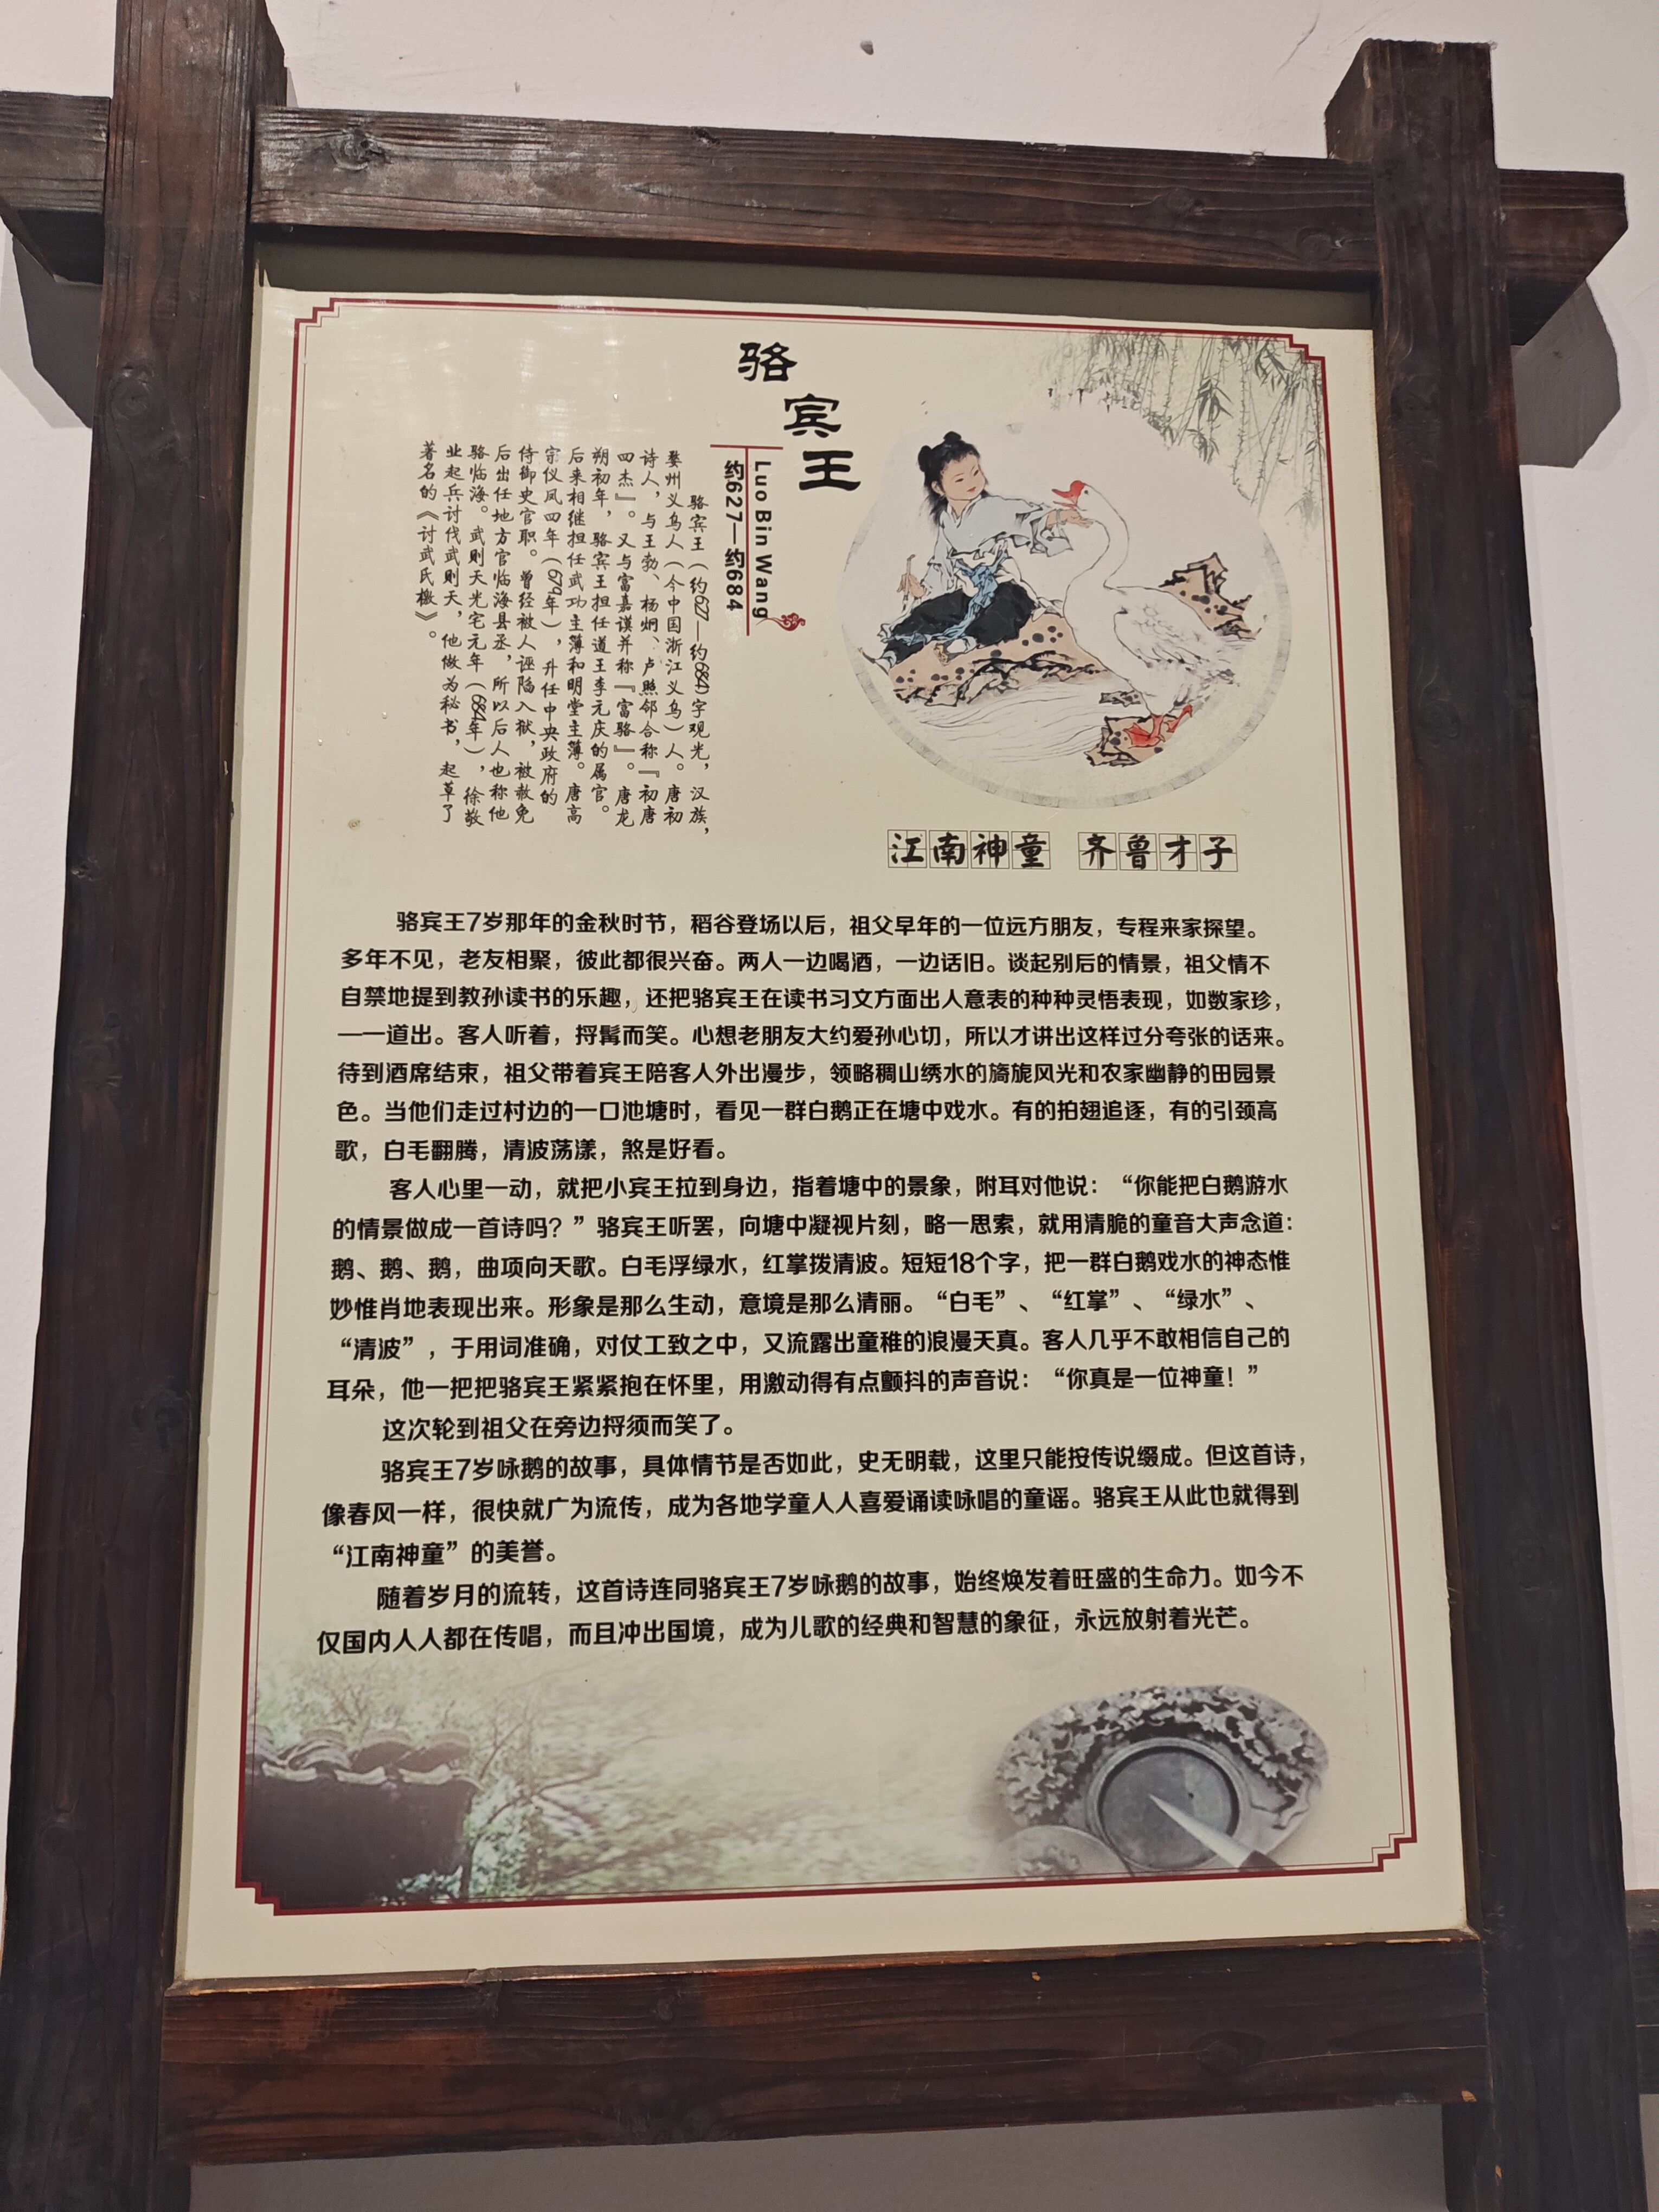 骆
宾
王
Luo Bin Wang
约627—约684
骆宾王（约627—约684）字观光，汉族，
婺州义乌人（今中国浙江义乌）人。唐初
诗人，与王勃、杨炯、卢照邻合称『初唐
四杰』。又与富嘉谟并称『富骆』。唐龙
朔初年，骆宾王担任道王李元庆的属官。
后来相继担任武功主薄和明堂主薄。唐高
宗仪凤四年（679年），升任中央政府的
侍御史官职。曾经被人诬陷入狱，被赦免
后出任地方官临海县丞，所以后人也称他
骆临海。武则天光宅元年（684年），徐敬
业起兵讨伐武则天，他做为秘书，起草了
著名的《讨武氏檄》。
江南神童 齐鲁才子
骆宾王7岁那年的金秋时节，稻谷登场以后，祖父早年的一位远方朋友，专程来家探望。
多年不见，老友相聚，彼此都很兴奋。两人一边喝酒，一边话旧。谈起别后的情景，祖父情不
自禁地提到教孙读书的乐趣，还把骆宾王在读书习文方面出人意表的种种灵悟表现，如数家珍，
一一道出。客人听着，捋髯而笑。心想老朋友大约爱孙心切，所以才讲出这样过分夸张的话来。
待到酒席结束，祖父带着宾王陪客人外出漫步，领略稠山绣水的旖旎风光和农家幽静的田园景
色。当他们走过村边的一口池塘时，看见一群白鹅正在塘中戏水。有的拍翅追逐，有的引颈高
歌，白毛翻腾，清波荡漾，煞是好看。
客人心里一动，就把小宾王拉到身边，指着塘中的景象，附耳对他说：“你能把白鹅游水
的情景做成一首诗吗？”骆宾王听罢，向塘中凝视片刻，略一思索，就用清脆的童音大声念道：
鹅、鹅、鹅，曲项向天歌。白毛浮绿水，红掌拨清波。短短18个字，把一群白鹅戏水的神态惟
妙惟肖地表现出来。形象是那么生动，意境是那么清丽。“白毛”、“红掌”、“绿水”、
“清波”，于用词准确，对仗工致之中，又流露出童稚的浪漫天真。客人几乎不敢相信自己的
耳朵，他一把把骆宾王紧紧抱在怀里，用激动得有点颤抖的声音说：“你真是一位神童！”
这次轮到祖父在旁边捋须而笑了。
骆宾王7岁咏鹅的故事，具体情节是否如此，史无明载，这里只能按传说缀成。但这首诗，
像春风一样，很快就广为流传，成为各地学童人人喜爱诵读咏唱的童谣。骆宾王从此也就得到
“江南神童”的美誉。
随着岁月的流转，这首诗连同骆宾王7岁咏鹅的故事，始终焕发着旺盛的生命力。如今不
仅国内人人都在传唱，而且冲出国境，成为儿歌的经典和智慧的象征，永远放射着光芒。